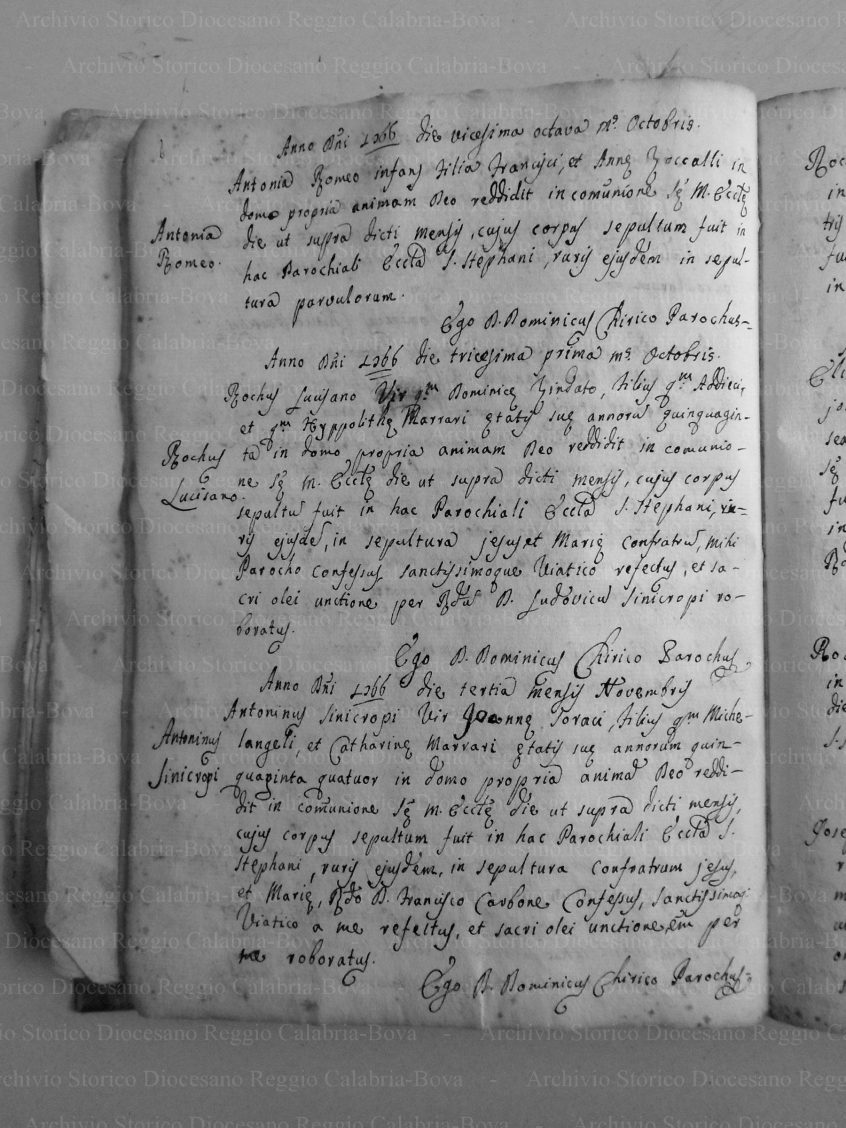 Anno Dñi 1766 die vicesima octava ms. Octobris.
Antonia Romeo infans filia Francisci, et Annę Zoccalli in
domo propria animam Deo reddidit in comunione Sę M. Ecctę
die ut supra dicti mensis, cujus corpus sepultum fuit in
hac Parochiali Ecctã S. Stephani, ruris ejusdem in sepul-
tura parvulorum.
Antonia
Romeo.
Ego D. Dominicus Chirico Parochus
Anno Dñi 1766 die tricesima prima ms. Octobris.
Rochus Lucisano Vir qm Dominicę filius qm
et qm Hyppolitę Marrari ętatis suę annorũ quinquagin-
ta in domo propria animam Deo reddidit in comunio-
ne Sę M. Ecctę die ut supra dicti mensis, cujus corpus
sepultũ fuit in hac Parochiali Ecctã S. Stephani, ru-
ris ejusdẽ, in sepultura jesu, et Marię confratrũ, mihi
Parocho confessus, sanctissimoque Viatico refectus, et sa-
cri olei unctione per Rdũ D. Ludovicũ Sinicropi ro-
boratus.
Rochus
Lucisano.
Ego D. Dominicus Chirico Parochus
Anno Dñi 1766 die tertia mensis Novembris
Antoninus Sinicropi Vir Joannę Soraci, filius qm Miche-
langeli, et Catharinę Marrari ętatis suę annorum quin-
quaginta quatuor in domo propria animã Deo reddi-
dit in comunione Sę M. Ecctę die ut supra dicti mensis,
cujus corpus sepultum fuit in hac Parochiali Ecctã S.
Stephani, ruris ejusdem, in sepultura confratrum jesus,
et Marię, Rdo D. Francisco Carbone Confessus, sanctissimoq;
Viatico a me refectus, et sacri olei unctione per
me roboratus.
Antoninus
Sinicropi
Ego D. Dominicus Chirico Parochus
Archivio Storico Diocesano Reggio Calabria-Bova